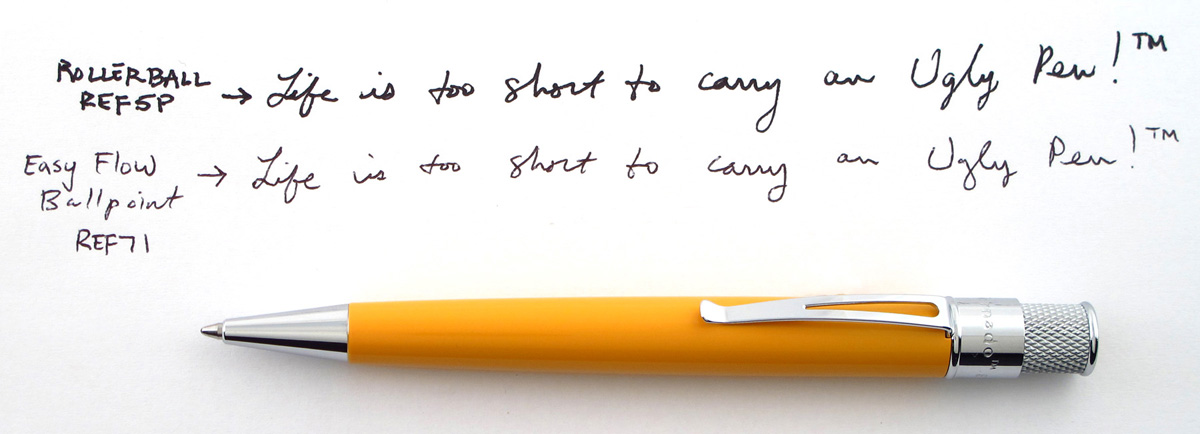 ROLLERBALL
REF5P → Life is too short to carry an Ugly Pen!™
Easy Flow
Ballpoint → Life is too short to carry an Ugly Pen!™
REF71